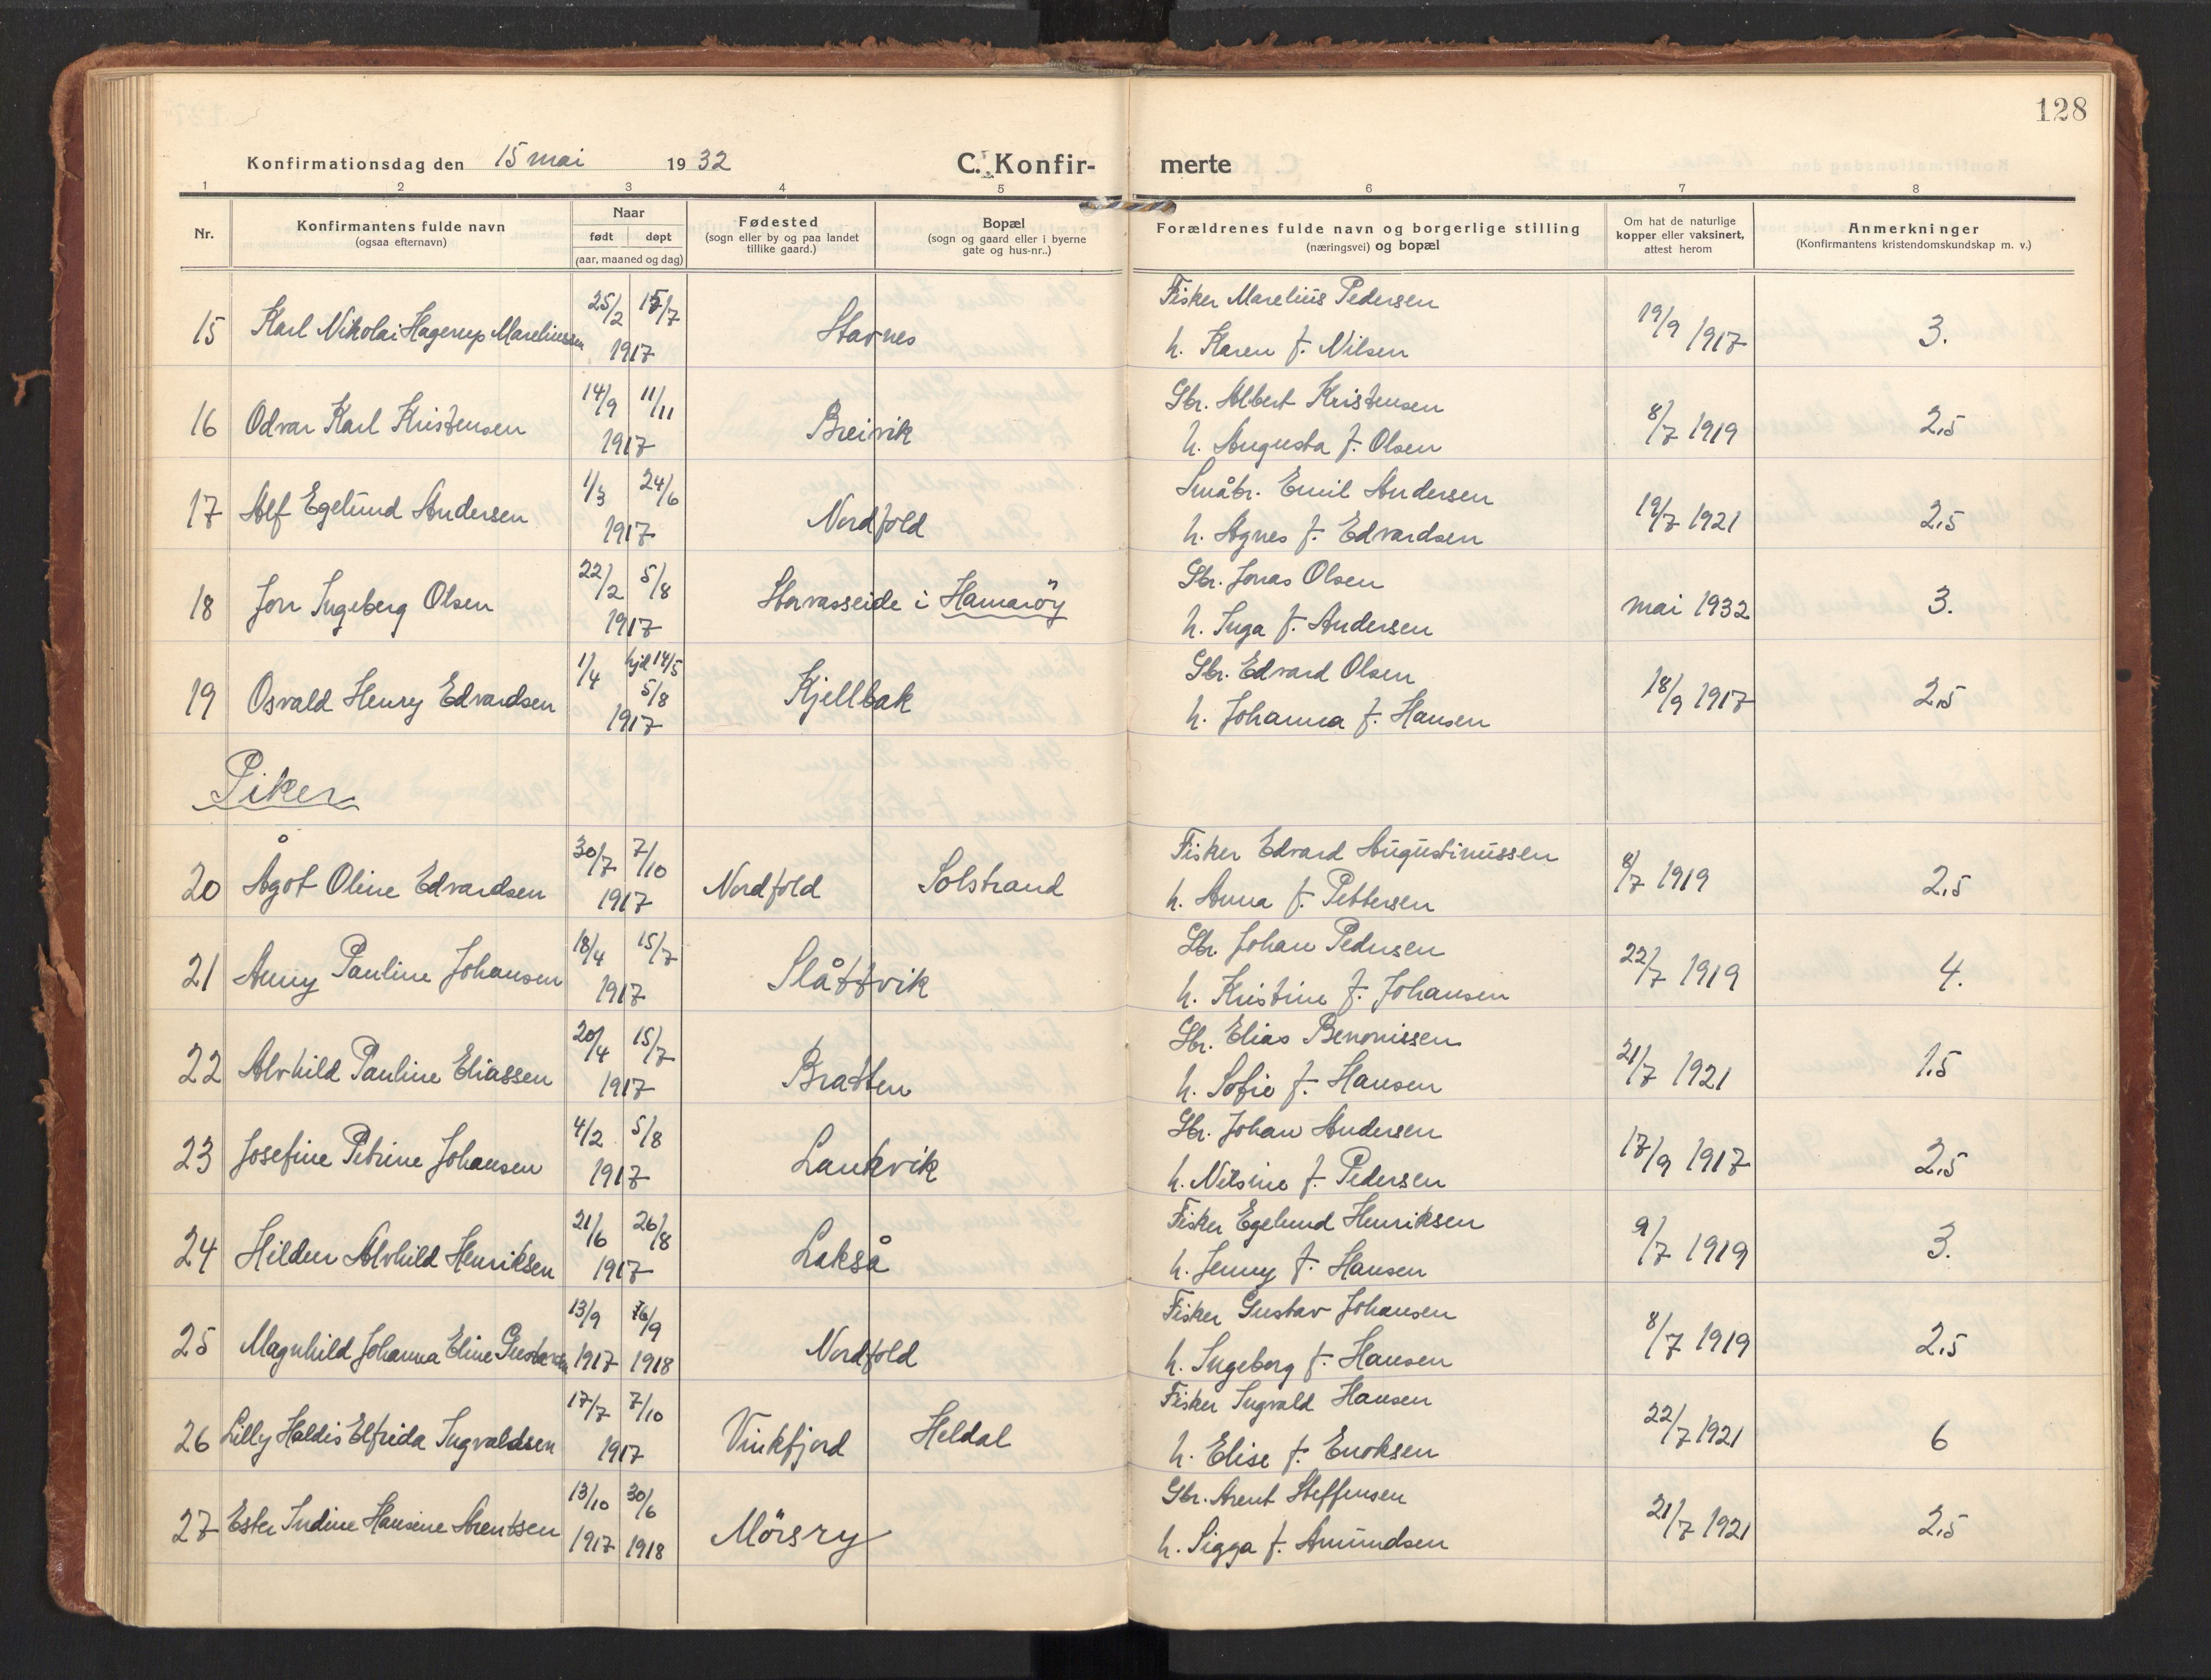 128
Konfirmationsdag den 15 mai 1932 C. Konfir- merte
1 2 3 4 5 6 7 8
Nr. Konfirmantens fulde navn (ogsaa efternavn) Naar født døpt (aar, maaned og dag) Fødested (sogn eller by og paa landet tillike gaard.) Bopæl (sogn og gaard eller i byerne gate og hus-nr..) Forældrenes fulde navn og borgerlige stilling (næringsvei) og bopæl Om hat de naturlige kopper eller vaksinert, attest herom Anmerkninger (Konfirmantens kristendomskundskap m. v.)
25/2 15/7 Fisker Marelius Pedersen
15 Karl Nikolai Hagerup Mareliussen 1917 Stavnes h. Karen f. Nilsen 19/9 1917 3.
14/9 11/11 Gbr. Albert Kristensen
16 Odvar Karl Kristensen 1917 Breivik h. Augusta f. Olsen 8/7 1919 2,5
1/3 24/6 Småbr. Emil Andersen
17 Alf Egelund Andersen 1917 Nordfold h. Agnes f. Edvardsen 19/7 1921 2,5
22/2 5/8 Gbr. Jonas Olsen
18 Jon Ingeberg Olsen 1917 Storvasseide i Hamaröy h. Inga f. Andersen mai 1932 3.
1/4 hjd 14/5 5/8 Gbr. Edvard Olsen
19 Osvald Henry Edvardsen 1917 Kjellbak h. Johanna f. Hansen 18/9 1917 2,5
Piker
30/7 7/10 Fisker Edvard Augustinussen
20 Ågot Oline Edvardsen 1917 Nordfold Solstrand h. Anna f. Pettersen 8/7 1919 2,5
18/4 15/7 Gbr. Johan Pedersen
21 Anny Pauline Johansen 1917 Slåttvik h. Kristine f. Johansen 22/7 1919 4.
20/4 15/7 Gbr. Elias Benonissen
22 Alvhild Pauline Eliassen 1917 Bratten h. Sofie f. Hansen 21/7 1921 1.5
4/2 5/8 Gbr. Johan Andersen
23 Josefine Petrine Johansen 1917 Lankvik h. Nilsine f. Pedersen 17/9 1917 2,5
21/6 26/8 Fisker Egelund Henriksen
24 Hildur Alvhild Henriksen 1917 Lakså h. Jenny f. Hansen 9/7 1919 3.
13/9 /9 Fisker Gustav Johansen
25 Magnhild Johanna Eline Gustavsen 1917 1918 Nordfold h. Ingeborg f. Hansen 8/7 1919 2,5
17/7 7/10 Fisker Ingvald Hansen
26 Lilly Haldis Elfrida Ingvaldsen 1917 Vinkfjord Heldal h. Elise f. Enoksen 22/7 1921 6
13/10 30/6 Gbr. Arent Steffensen
27 Ester Indine Hansine Arentsen 1917 1918 Mörsry h. Sigga f. Amundsen 21/7 1921 2,5